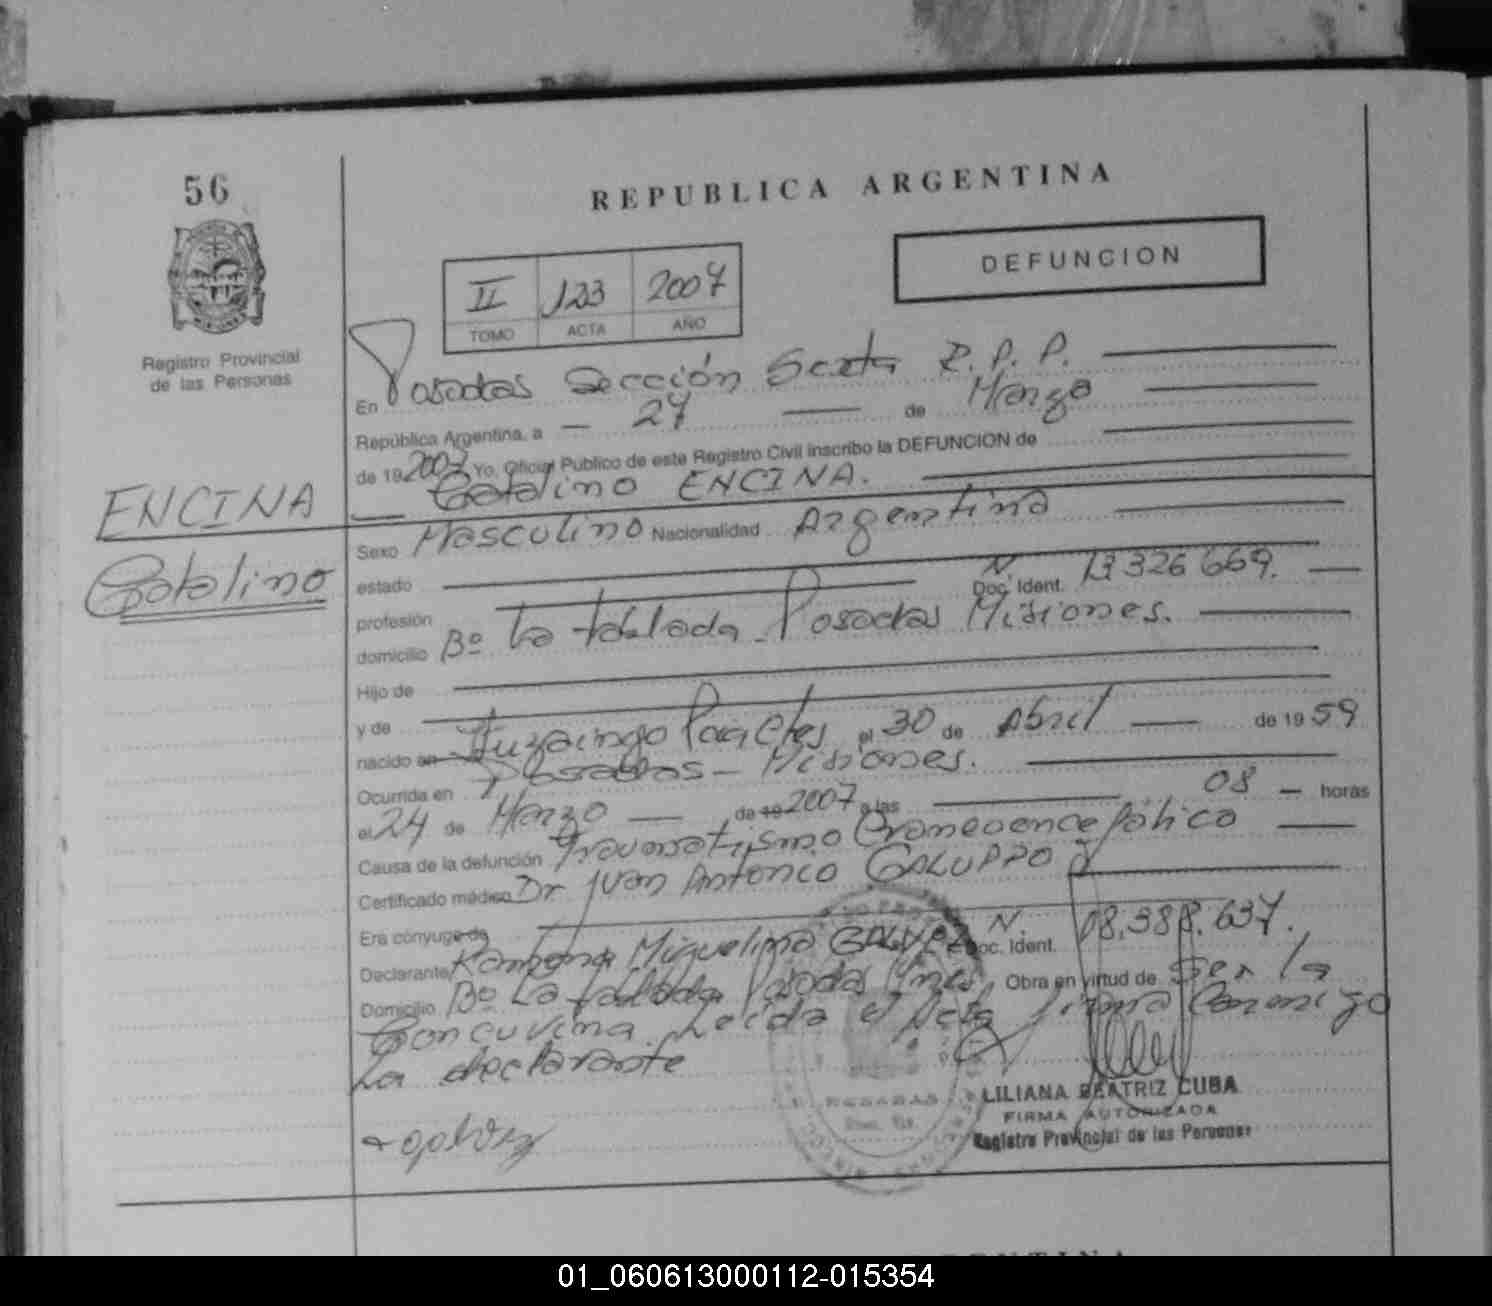 56
REPUBLICA ARGENTINA
DEFUNCION
II 123 2007
TOMO ACTA AÑO
Registro Provincial
de las Personas
En Posadas Sección Sexta R.P.P.
República Argentina, a 27 de Marzo
de 19 2007 Yo, Oficial Público de este Registro Civil inscribo la DEFUNCION de
Catalino ENCINA.
ENCINA
Catalino
Sexo Masculino Nacionalidad Argentina
estado N Doc. Ident. 13326669.
profesión
domicilio Bº La tablada Posadas Misiones.
Hijo de
y de
nacido en Ituzaingo el 30 de Abril de 19 59
Ocurrida en Posadas - Misiones.
el 24 de Marzo de 19 2007 a las 08 horas
Causa de la defunción Traumatismo Craneoencefálico
Certificado médico Dr. Juan Antonio GALUPPO
Era cónyuge de N.
Declarante Ramona Miguelina GALVEZ Doc. Ident. 08.388.637.
Domicilio Bº La tablada Posadas Mnes. Obra en virtud de Ser la
Concuvina. Leida el Acta firma Conmigo
La declarante
galvez
LILIANA BEATRIZ CUBA
FIRMA AUTORIZADA
Registro Provincial de las Personas
POSADAS
01_060613000112-015354